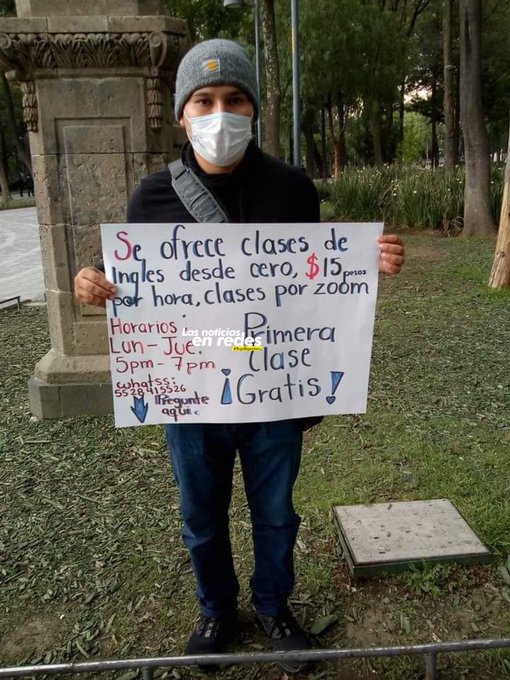 Se ofrece clases de
Ingles desde cero, $15 pesos
por hora, clases por zoom
Horarios:
Lun-Jue.
5pm-7pm
Primera
clase
¡Gratis!
whatss:
5528415526
Pregunte
aqui.
Las noticias
en redes